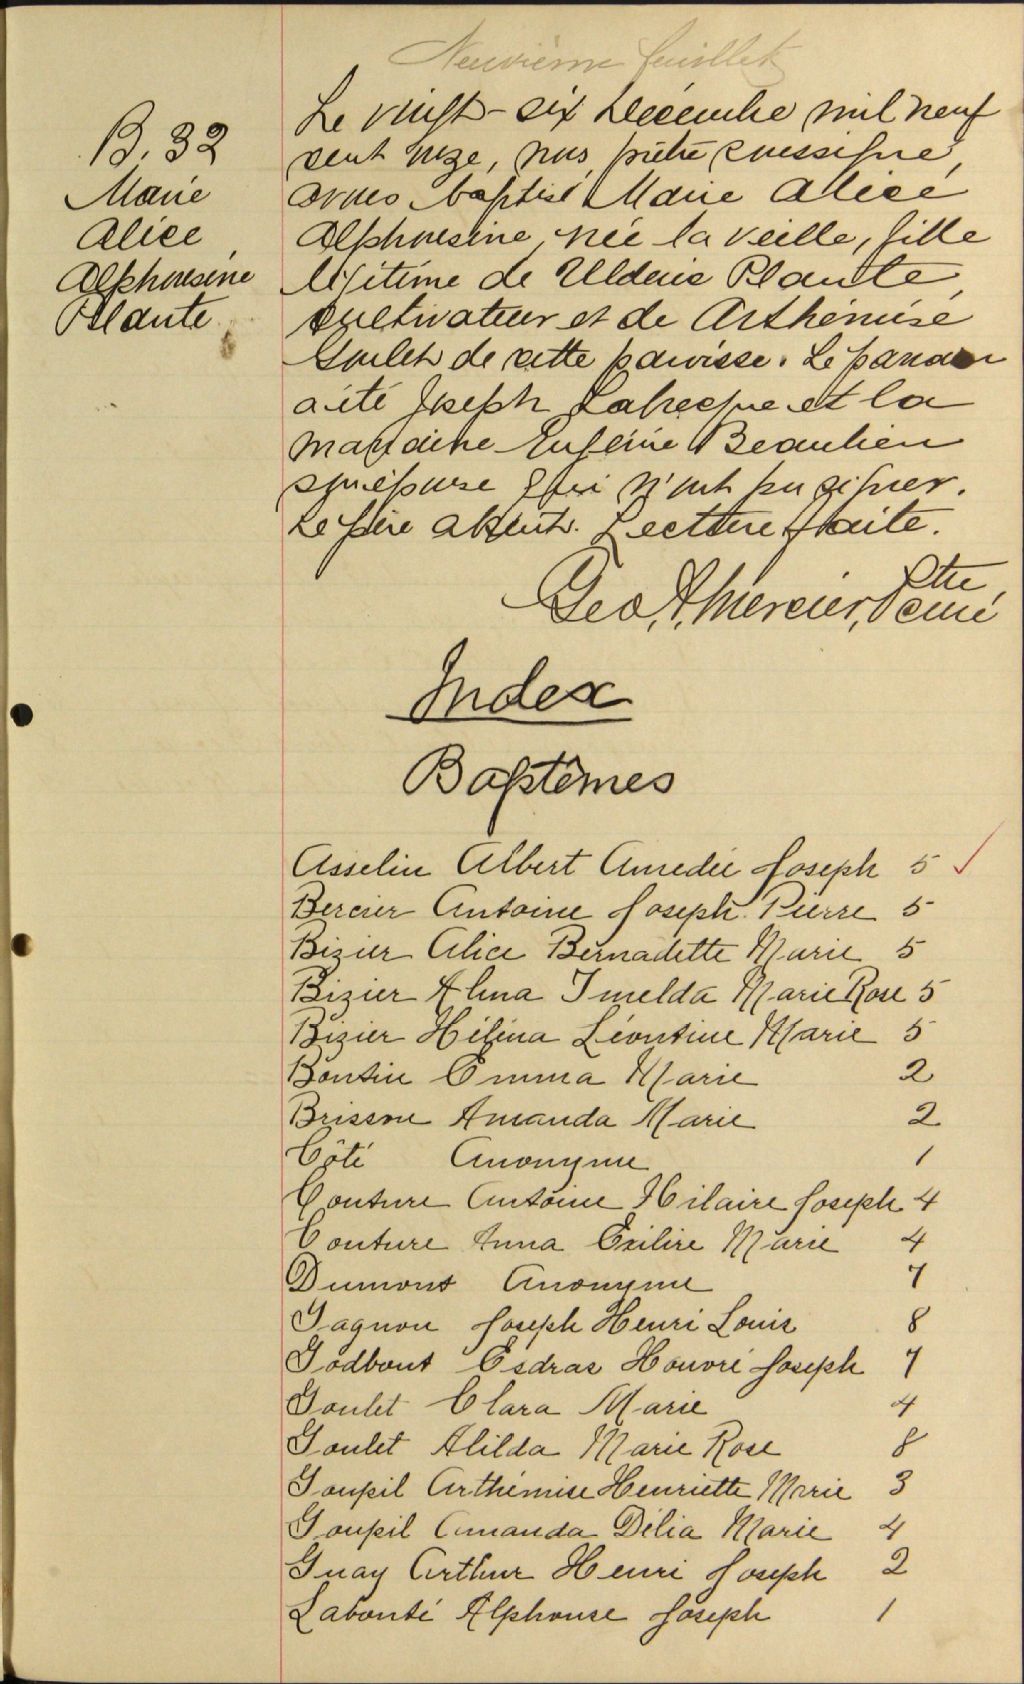 Neuvième feuillet
B. 32
Marie
Alice
Alphonsine
Plante
Le vingt-six Décembre mil neuf
cent onze, nous, prêtre soussigné,
avons baptisé Marie Alice
Alphonsine, née la veille, fille
légitime de Uldéric Plante,
cultivateur et de Arthémise
Goulet de cette paroisse. Le parrain
a été Joseph Labrecque et la
marraine Eugénie Beaulieu
son épouse qui n'ont pu signer.
Le père absent. Lecture faite.
Geo. A. Mercier, Ptre
curé
Index
Baptêmes
Asselin Albert Amedée Joseph 5
Bercier Antoine Joseph Pierre 5
Bizier Alice Bernadette Marie 5
Bizier Alma Imelda Marie Rose 5
Bizier Héléna Léontine Marie 5
Bontin Emma Marie 2
Brisson Amanda Marie 2
Côté Anonyme 1
Couture Antoine Hilaire Joseph 4
Couture Anna Exilire Marie 4
Dumont Anonyme 7
Gagnon Joseph Henri Louis 8
Godbout Esdras Honoré Joseph 7
Goulet Clara Marie 4
Goulet Alilda Marie Rose 8
Goupil Arthémise Henriette Marie 3
Goupil Amanda Délia Marie 4
Guay Arthur Henri Joseph 2
Labonté Alphonse Joseph 1